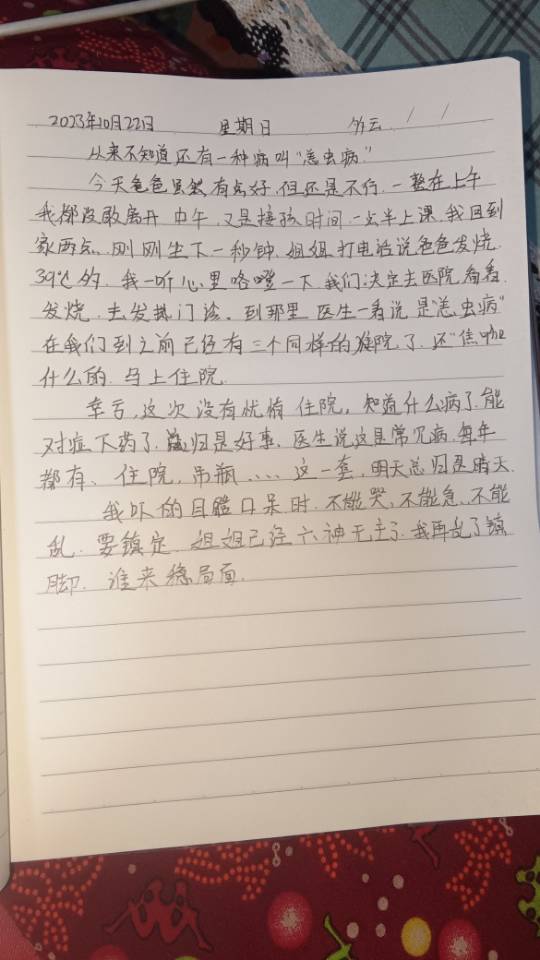 2023年10月22日 星期日 多云 / /
从来不知道还有一种病叫"恙虫病."
今天爸爸虽然有点好,但还是不行.一整在上午
我都没敢离开 中午,又是接孩时间.一点半上课.我回到
家两点.刚刚坐下一秒钟.姐姐打电话说爸爸发烧.
39℃的.我一听心里咯噔一下.我们决定去医院看看.
发烧.去发热门诊.到那里 医生一看说是"恙虫病"
在我们到之前已经有三个同样的住院了.还"焦咖"
什么的.马上住院.
幸亏,这次没有犹悄住院,知道什么病了.能
对症下药了.总归是好事.医生说这是常见病.每年
都有、住院,吊瓶....这一套,明天总归是晴天.
我吓的目瞪口呆时.不能哭,不能急.不能
乱.要镇定.姐姐已经六神无主了.我再乱了镇
脚.谁来稳局面.